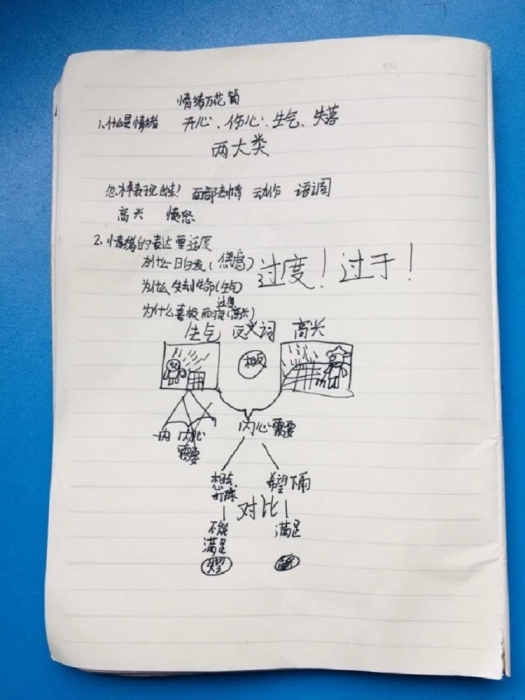 情绪万花筒
1.什么是情绪 开心、伤心、生气、失落
两大类
怎样表现出来? 面部表情 动作 语调
高兴 愤怒
2.情绪的表达要适度
为什么一日白发(焦虑)
为什么失去生命(生气)
过度
为什么喜极而泣(高兴)
过度!过于!
生气 反义词 高兴
相反
内心需要
内 内心
需要
想去 希望下雨
打球
对比
不能 满足
满足